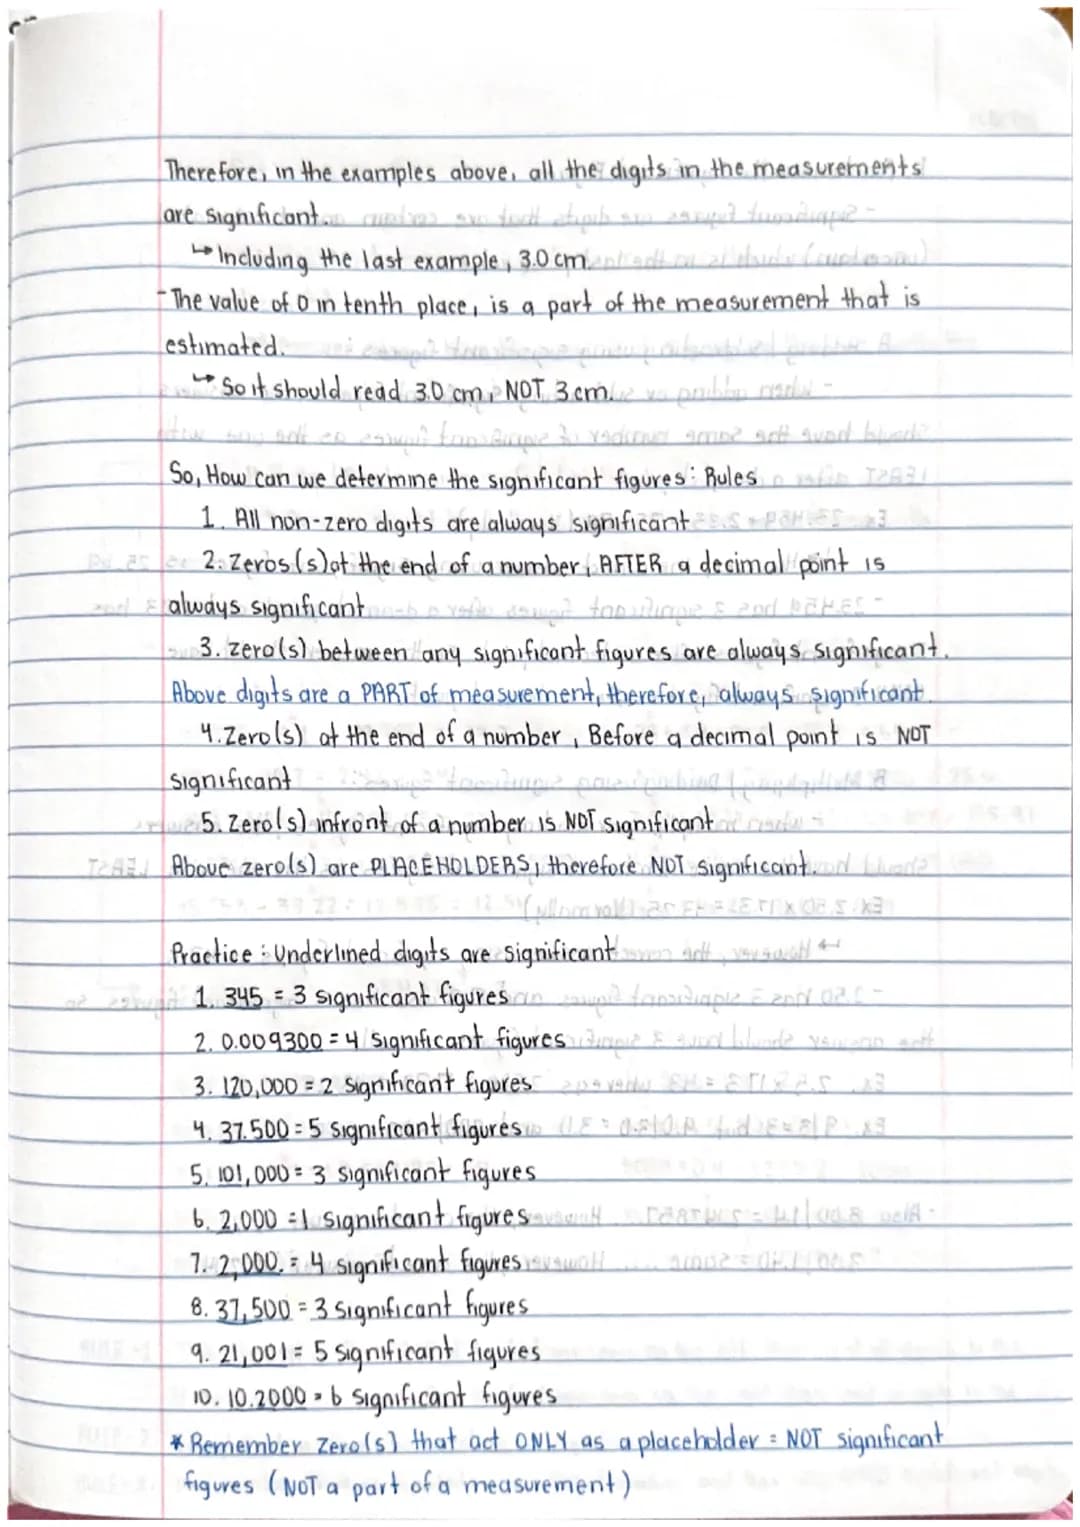 Therefore, in the examples above, all the digits in the measurements
are significant.
↳ Including the last example, 3.0 cm.
- The value of 0 in tenth place, is a part of the measurement that is
estimated.
↳ So it should read 3.0 cm, NOT 3 cm.
So, How can we determine the significant figures: Rules
1. All non-zero digits are always significant
2. Zeros(s) at the end of a number, AFTER a decimal point is
always significant
3. zero(s) between any significant figures are always significant.
Above digits are a PART of measurement, therefore, always significant.
4. Zero(s) at the end of a number, Before a decimal point is NOT
significant
5. Zero(s) infront of a number is NOT significant
Above zero(s) are PLACEHOLDERS, therefore NOT significant.
Practice: Underlined digits are significant
1. 345 = 3 significant figures
2. 0.009300 = 4 significant figures
3. 120,000 = 2 significant figures
4. 37.500 = 5 significant figures
5. 101,000 = 3 significant figures
6. 2,000 = 1 significant figures
7. 2,000. = 4 significant figures
8. 37,500 = 3 significant figures
9. 21,001 = 5 significant figures
10. 10.2000 = 6 significant figures
* Remember Zero(s) that act ONLY as a placeholder = NOT significant
figures (NOT a part of a measurement)